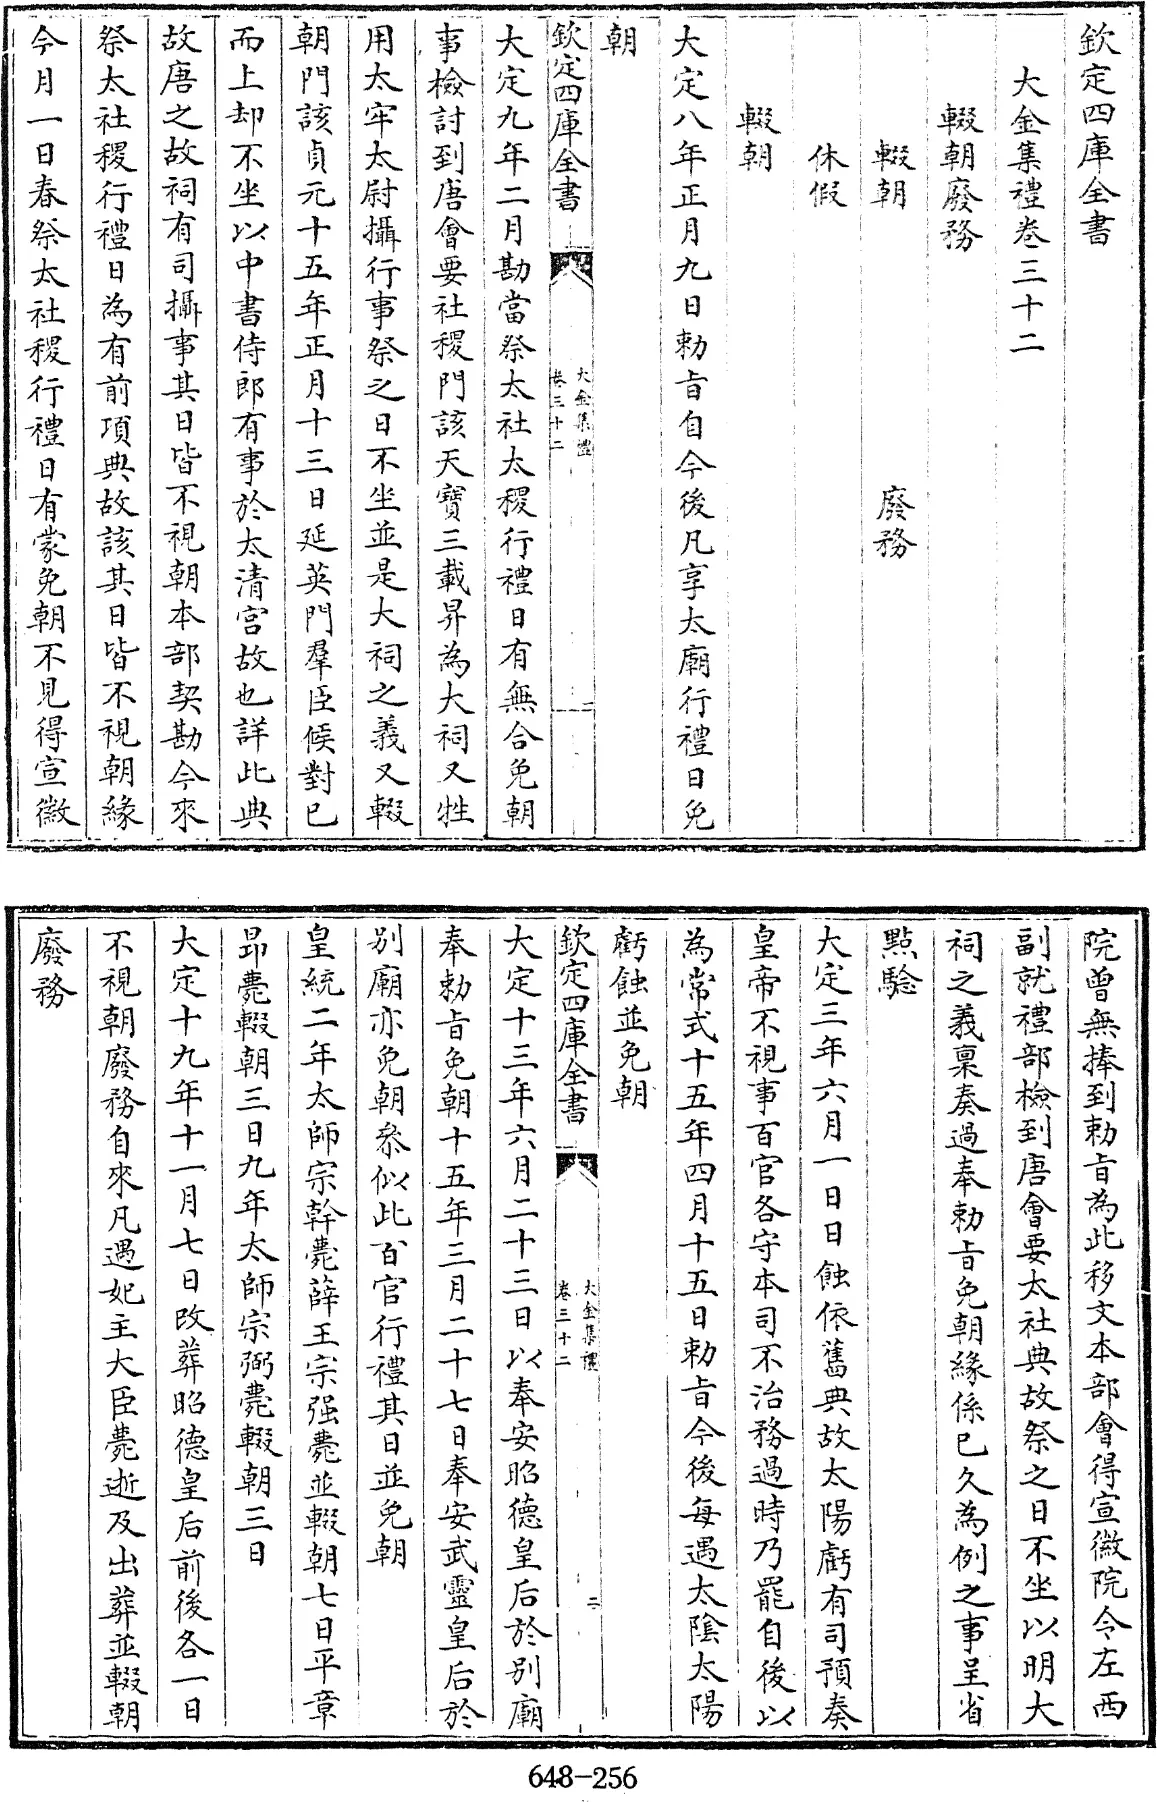 欽定四庫全書
大金集禮卷三十二
輟朝廢務
輟朝 廢務
休假
輟朝
大定八年正月九日勅旨自今後凡享太廟行禮日免
朝
欽定四庫全書 大金集禮 卷三十二 一
大定九年二月勘當祭太社太稷行禮日有無合免朝
事檢討到唐會要社稷門該天寶三載昇為大祠又牲
用太牢太尉攝行事祭之日不坐並是大祠之義又輟
朝門該貞元十五年正月十三日延英門羣臣候對已
而上却不坐以中書侍郎有事於太清宮故也詳此典
故唐之故祠有司攝事其日皆不視朝本部契勘今來
祭太社稷行禮日為有前項典故該其日皆不視朝緣
今月一日春祭太社稷行禮日有蒙免朝不見得宣徽
院曾無捧到勅旨為此移文本部會得宣徽院令左西
副就禮部檢到唐會要太社典故祭之日不坐以明大
祠之義稟奏過奉勅旨免朝緣係已久為例之事呈省
點驗
大定三年六月一日日蝕依舊典故太陽虧有司預奏
皇帝不視事百官各守本司不治務過時乃罷自後以
為常式十五年四月十五日勅旨今後每遇太陰太陽
虧蝕並免朝
欽定四庫全書 大金集禮 卷三十二 二
大定十三年六月二十三日以奉安昭德皇后於別廟
奉勅旨免朝十五年三月二十七日奉安武靈皇后於
別廟亦免朝叅似此百官行禮其日並免朝
皇統二年太師宗幹薨薛王宗强薨並輟朝七日平章
昂薨輟朝三日九年太師宗弼薨輟朝三日
大定十九年十一月七日改葬昭德皇后前後各一日
不視朝廢務自來凡遇妃主大臣薨逝及出葬並輟朝
廢務
648-256